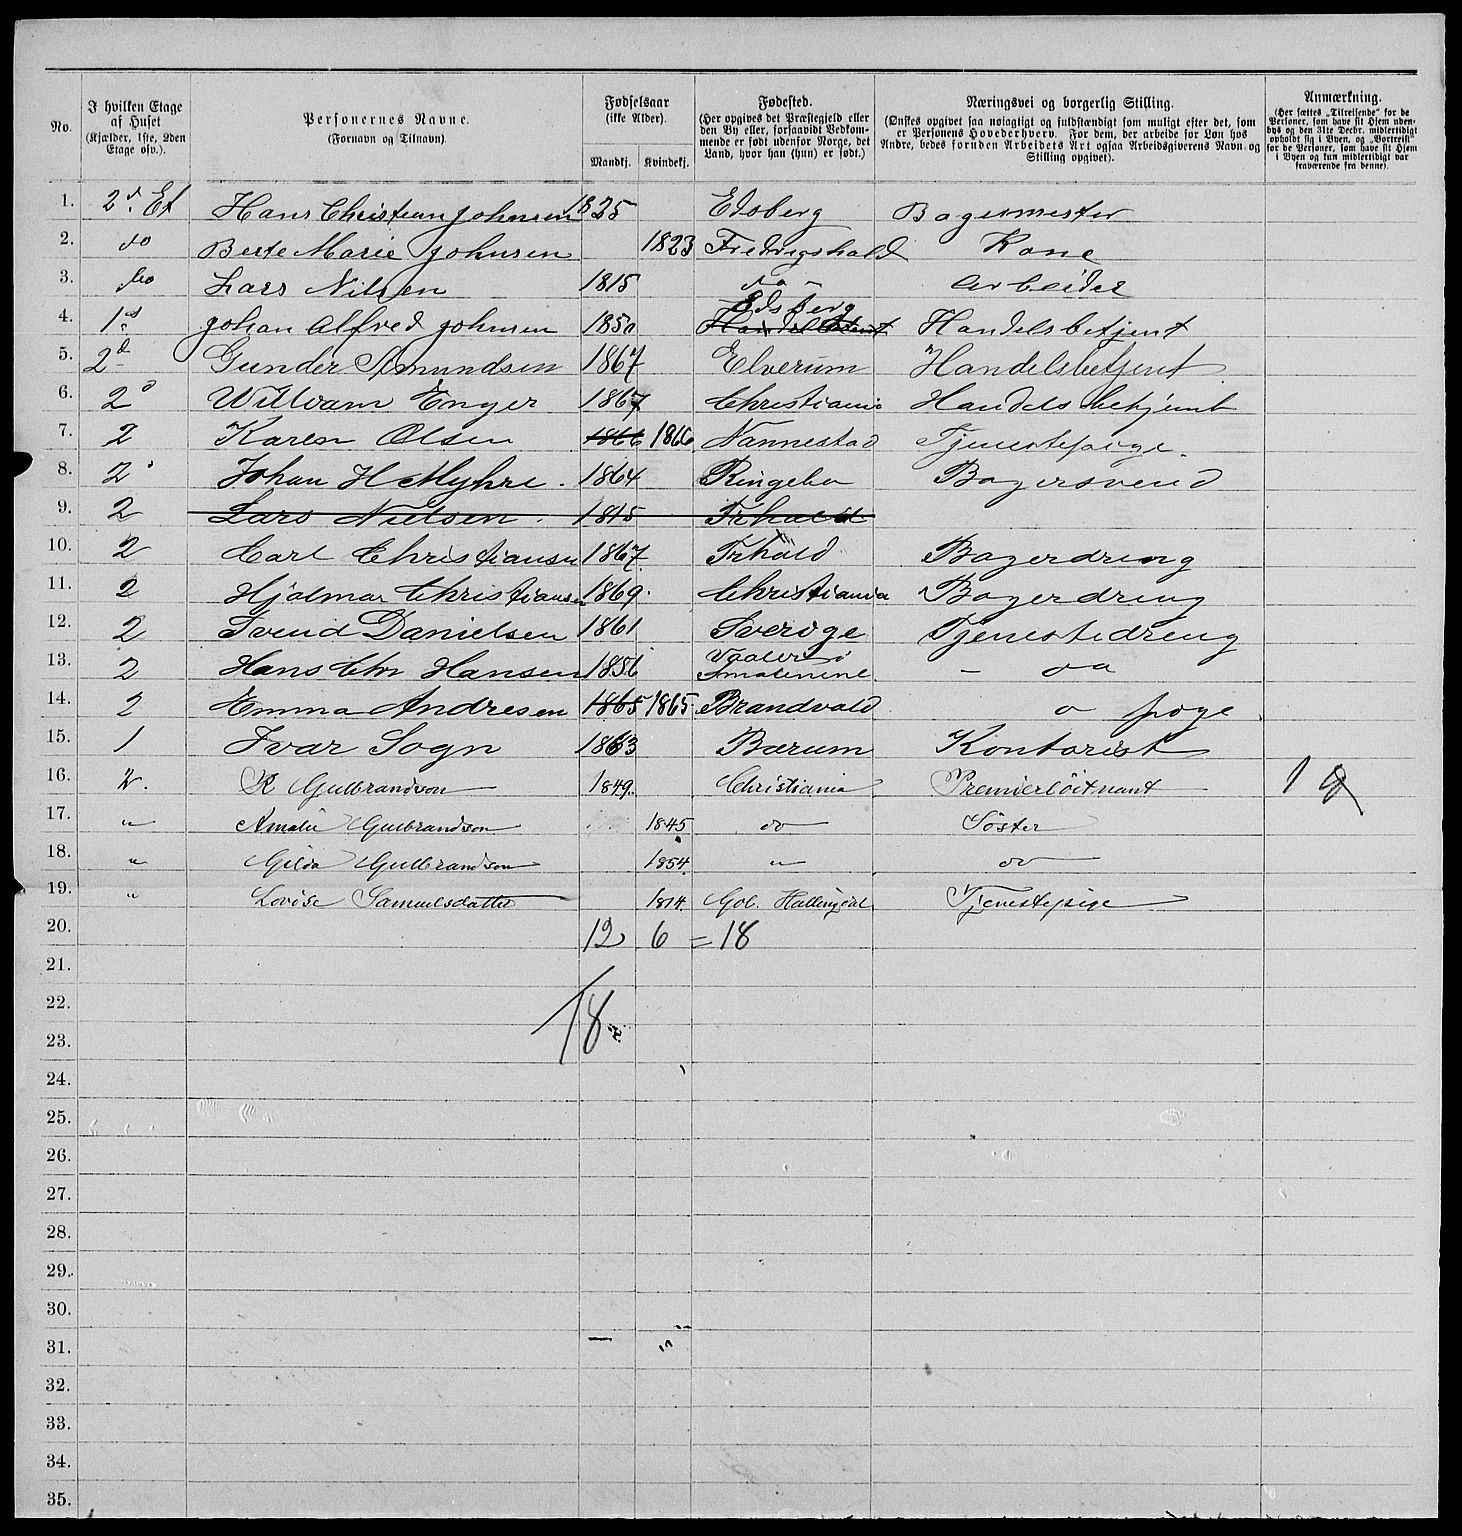 No. | I hvilken Etage af Huset (Kjælder, 1ste, 2den Etage osv.). | Personernes Navne. (Fornavn og Tilnavn) | Fødselsaar (ikke Alder). Mandkj. | Kvindekj. | Fødested. (Her opgives det Præstegjeld eller den By eller, forsaavidt Vedkommende er født udenfor Norge, det Land, hvor han (hun) er født.) | Næringsvei og borgerlig Stilling. (Ønskes opgivet saa nøiagtigt og fuldstændigt som muligt efter det, som er Personens Hovederhverv. For dem, der arbeide for Løn hos Andre, bedes foruden Arbeidets Art ogsaa Arbeidsgiverens Navn og Stilling opgivet). | Anmærkning. (Her sættes „Tilreisende" for de Personer, som have sit Hjem udenbys og den 31te Decbr. midlertidigt opholdt sig i Byen, og „Bortreist" for de Personer, som have sit Hjem i Byen og kun midlertidigt var fraværende fra denne).
1. 2d. Et Hans Christian Johnsen 1825 Edsberg Bagermester
2. do Berte Marie Johnsen 1823 Fredrigshald Kone
3. do Lars Nilsen 1815 do - Arbeider
4. 1st Johan Alfred Johnsen 1850 Edsberg Handelsbetjent
5. 2d Gunder Amundsen 1867 Elverum Handelsbetjent
6. 2d William Enger 1867 Christiania Handelsbetjent
7. 2 Karen Olsen 1866 1866 Nannestad Tjenestepige.
8. 2 Johan H Myhre. 1864 Ringebo Bagersvend
9. 2 Lars Nielsen. 1815 Frhald
10. 2 Carl Christiansen 1867. Frhald Bagerdreng
11. 2 Hjalmar Christiansen 1869. Christiania Bagerdreng
12. 2 Svend Danielsen 1861 Sverige Tjenestedreng
13. 2 Hans Chr Hansen 1856 Vaaler i Smalenene. - do
14. 2 Emma Andresen 1865 1865 Brandvald o pige
15. 1 Ivar Sogn 1863 Bærum Kontorist
16. 2. R Gulbrandson 1849. Christiania Premierløitnant 1
17. " Amalie Gulbrandson 1845 do Søster
18. " Gilda Gulbrandson 1854. " do
19. " Lovise Samuelsdatter 1814. Gol. Hallingdal Tjenestepige
20. 12 6 = 18
21.
22.
18
23.
24.
25.
26.
27.
28.
29.
30.
31.
32.
33.
34.
35.